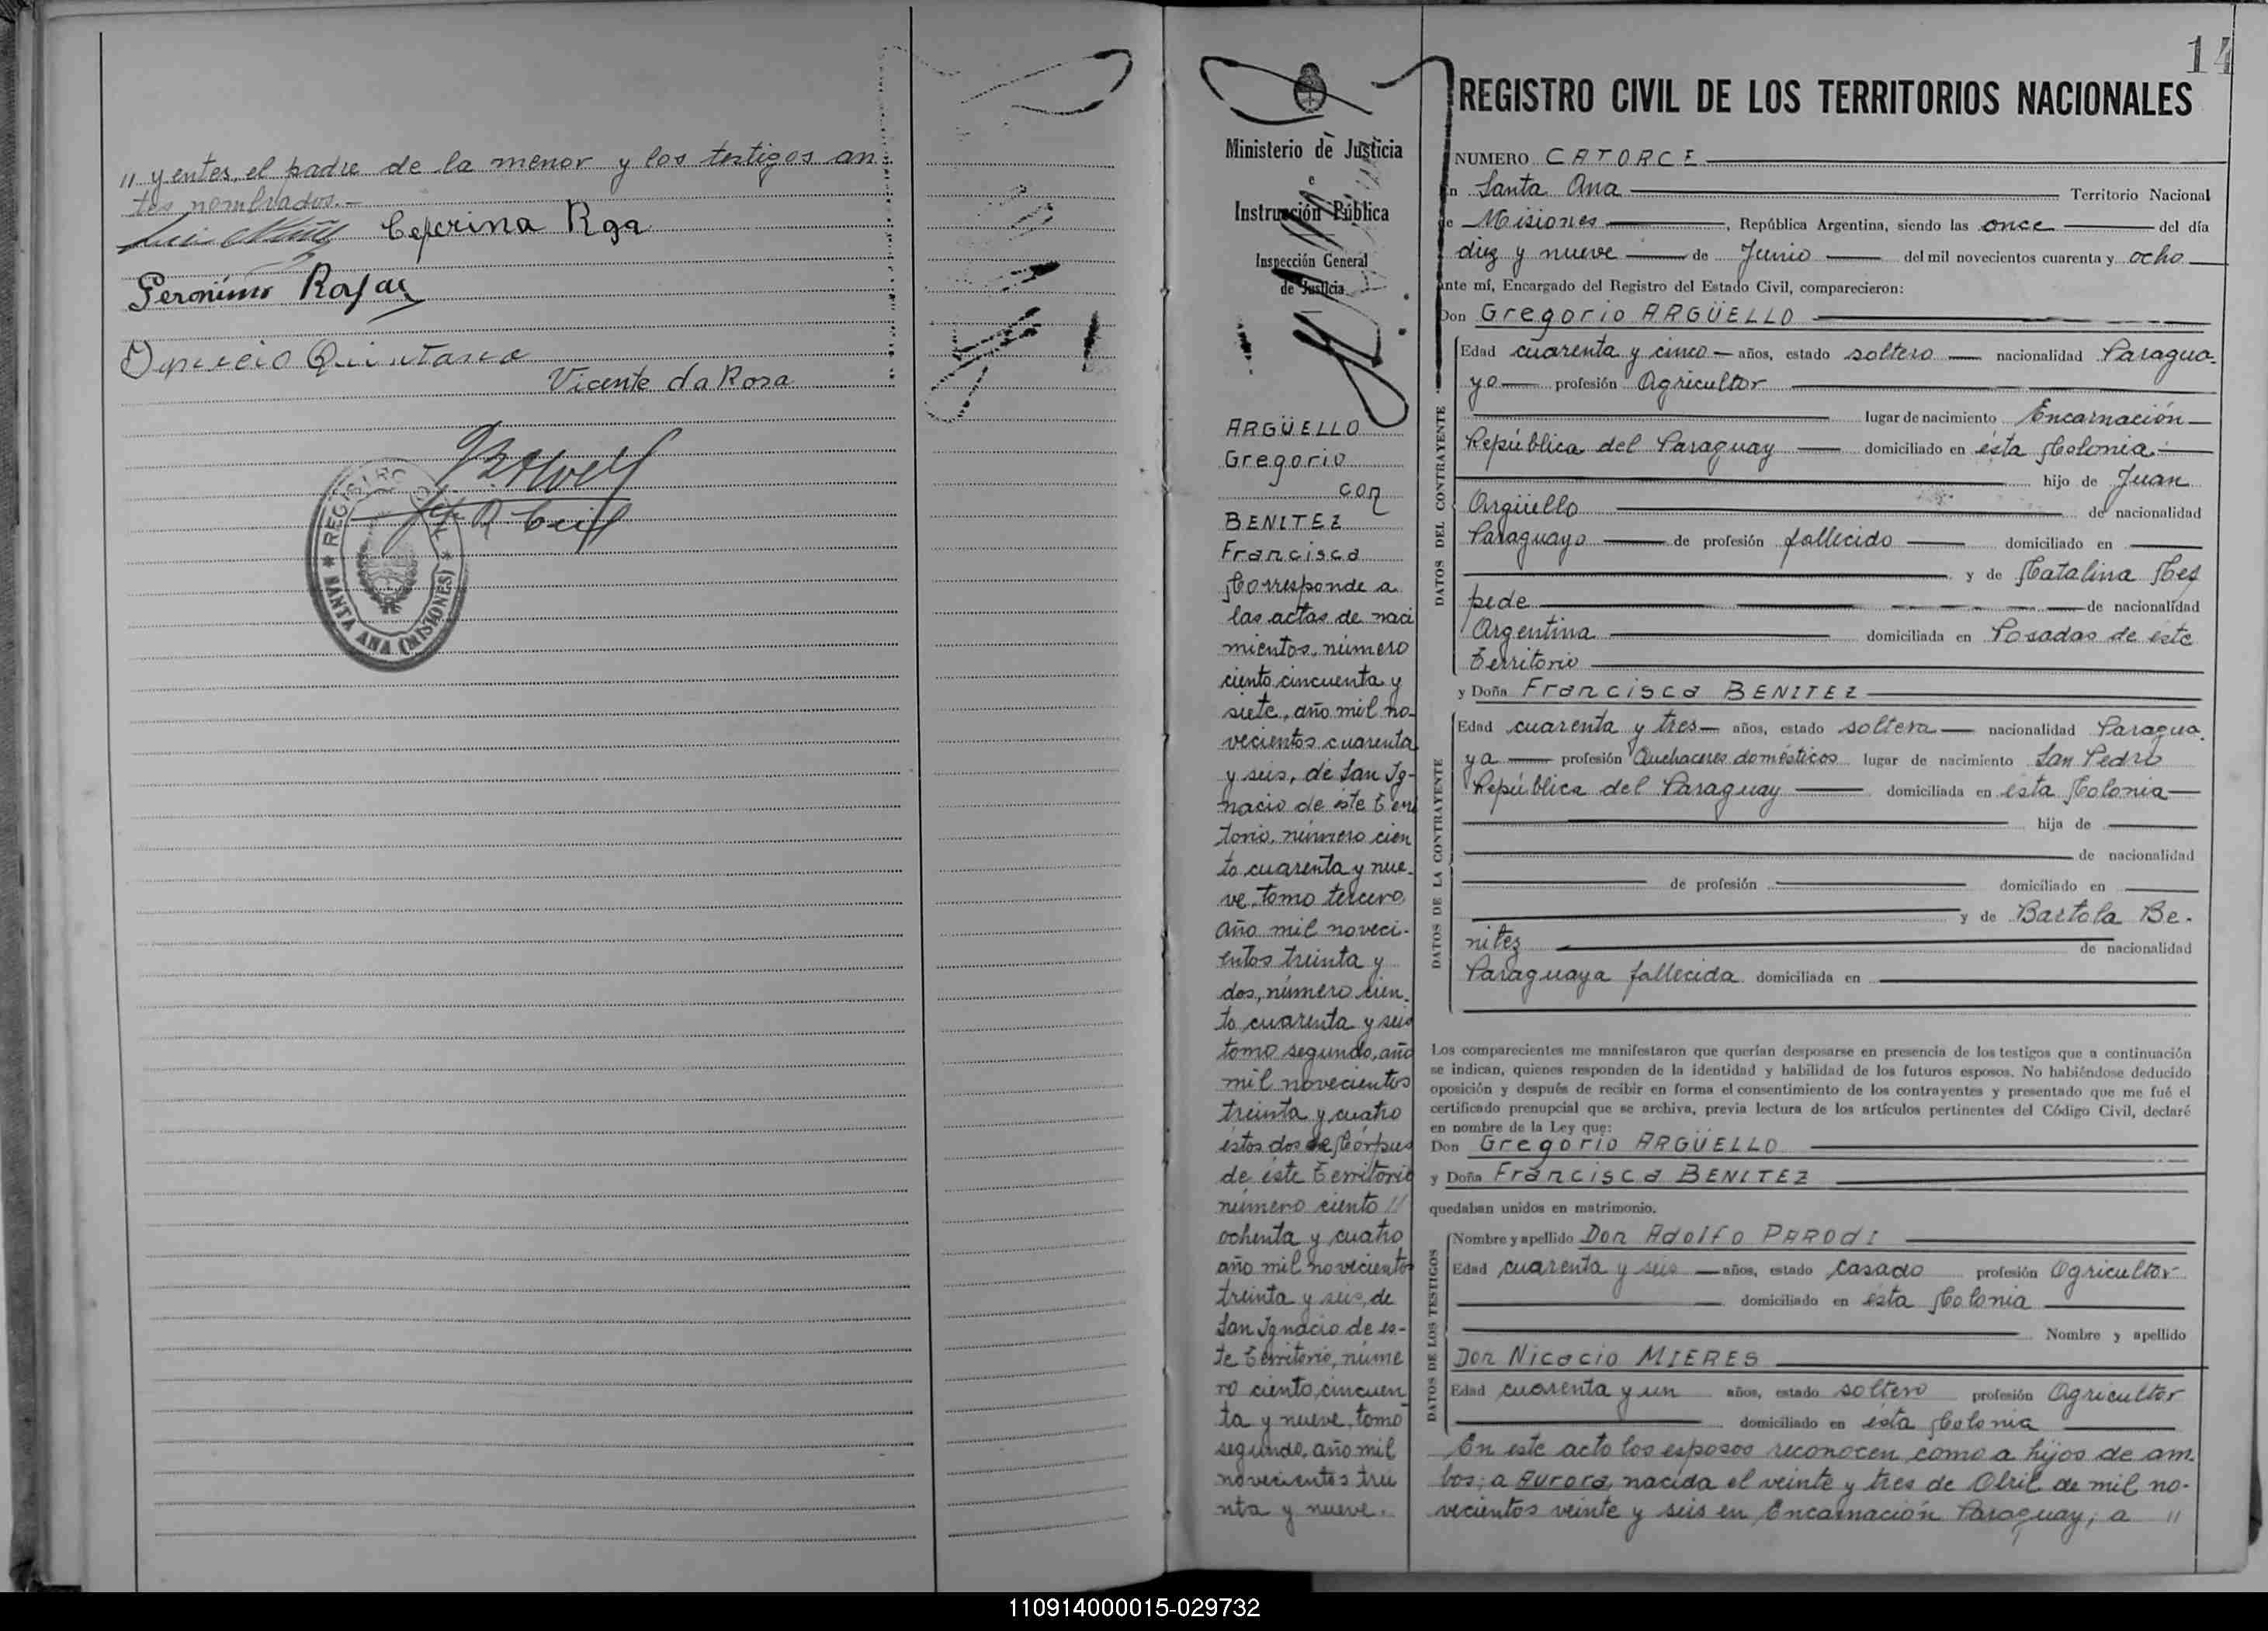 " yentes, el padre de la menor y los testigos an
tes nombrados.-
Ceferina Rga
Gerónimo Rojas
Quintana
Vicente da Rosa
REGISTRO CIVIL
* SANTA ANA (MISIONES) *
Ministerio de Justicia
e
Instrucción Pública
Inspección General
de Justicia
ARGÜELLO
Gregorio
con
BENITEZ
Francisca
Corresponde a
las actas de naci
mientos, número
ciento cincuenta y
siete, año mil no-
vecientos cuarenta
y seis, de San Ig-
nacio de éste Terri
torio, número cien
to cuarenta y nue-
ve, tomo tercero,
año mil noveci-
entos treinta y
dos, número cien-
to cuarenta y seis
tomo segundo, año
mil novecientos
treinta y cuatro
éstos dos de Córpus
de éste Territorio
número ciento //
ochenta y cuatro
año mil novecientos
treinta y seis, de
San Ignacio de es-
te Territorio, núme
ro ciento cincuen
ta y nueve, tomo
segundo, año mil
novecientos trei
nta y nueve.
14
REGISTRO CIVIL DE LOS TERRITORIOS NACIONALES
NUMERO CATORCE
En Santa Ana Territorio Nacional
de Misiones, República Argentina, siendo las once del día
diez y nueve de Junio del mil novecientos cuarenta y ocho
Ante mí, Encargado del Registro del Estado Civil, comparecieron:
Don Gregorio ARGÜELLO
DATOS DEL CONTRAYENTE
Edad cuarenta y cinco años, estado soltero nacionalidad Paragua-
yo profesión Agricultor
lugar de nacimiento Encarnación
República del Paraguay domiciliado en ésta Colonia
hijo de Juan
Argüello de nacionalidad
Paraguayo de profesión fallecido domiciliado en
y de Catalina Ces
pede de nacionalidad
Argentina domiciliada en Posadas de este
Territorio
y Doña Francisca BENITEZ
DATOS DE LA CONTRAYENTE
Edad cuarenta y tres años, estado soltera nacionalidad Paragua-
ya profesión Quehaceres domésticos lugar de nacimiento San Pedro
República del Paraguay domiciliada en ésta Colonia
hija de
de nacionalidad
de profesión domiciliado en
y de Bartola Be-
nitez de nacionalidad
Paraguaya fallecida domiciliada en
Los comparecientes me manifestaron que querían desposarse en presencia de los testigos que a continuación
se indican, quienes responden de la identidad y habilidad de los futuros esposos. No habiéndose deducido
oposición y después de recibir en forma el consentimiento de los contrayentes y presentado que me fué el
certificado prenupcial que se archiva, previa lectura de los artículos pertinentes del Código Civil, declaré
en nombre de la Ley que:
Don Gregorio ARGÜELLO
y Doña Francisca BENITEZ
quedaban unidos en matrimonio.
DATOS DE LOS TESTIGOS
Nombre y apellido Don Adolfo PARODI
Edad cuarenta y seis años, estado casado profesión Agricultor
domiciliado en ésta Colonia
Nombre y apellido
Don Nicacio MIERES
Edad cuarenta y un años, estado soltero profesión Agricultor
domiciliado en ésta Colonia
En este acto los esposos reconocen como a hijos de am-
bos; a Aurora, nacida el veinte y tres de Abril de mil no-
vecientos veinte y seis en Encarnación Paraguay; a "
110914000015-029732